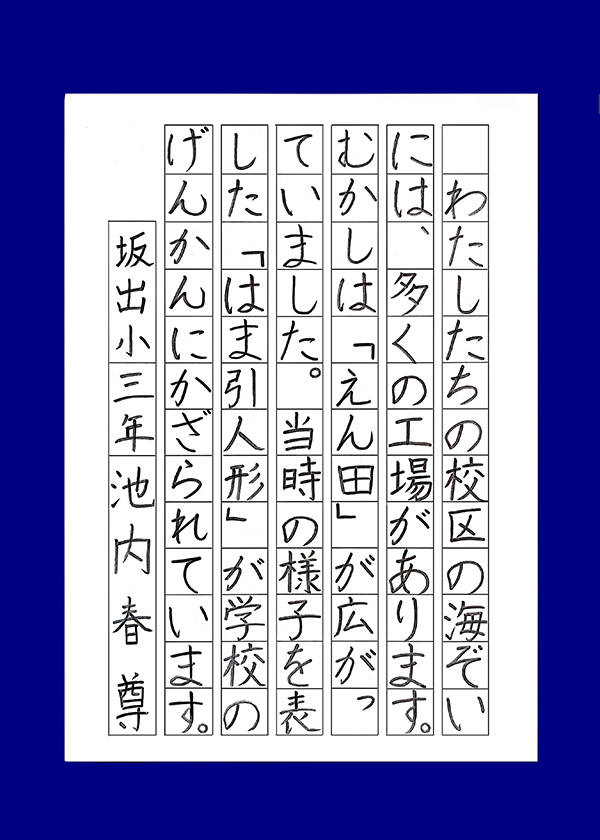 わたしたちの校区の海ぞい
には、多くの工場があります。
むかしは「えん田」が広がっ
ていました。当時の様子を表
した「はま引人形」が学校の
げんかんにかざられています。
坂出小三年池内春尊